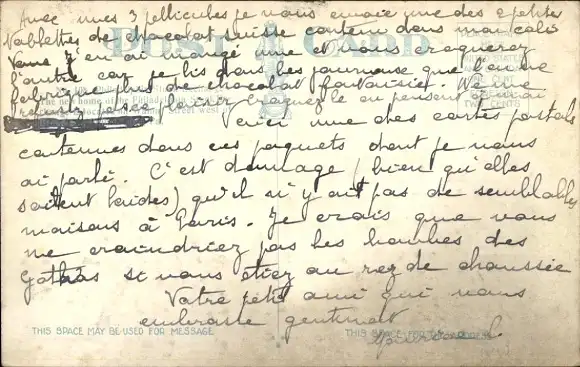 Avec mes 3 pellicules je vous envoie une des 2 petites
tablettes de chocolat suisse contenu dans mon colis
j'en ai mangé une et vous craquerez
l'autre car je lis dans les journaux que l'on ne
fabrique plus de chocolat fantaisiste. Ne me
refusez pas ce plaisir craquez le en pensant à moi
Voici une des cartes postales
contenues dans ces paquets dont je vous
ai parlé. C'est dommage (bien qu'elles
soient laides) qu'il n'y ait pas de semblables
maisons à Paris. Je crois que vous
ne craindriez pas les bombes des
Gothas si vous étiez au rez de chaussée
Votre petit ami qui vous
embrasse gentiment
POST CARD
TWO CENTS
THIS SPACE MAY BE USED FOR MESSAGE
THIS SPACE FOR ADDRESS